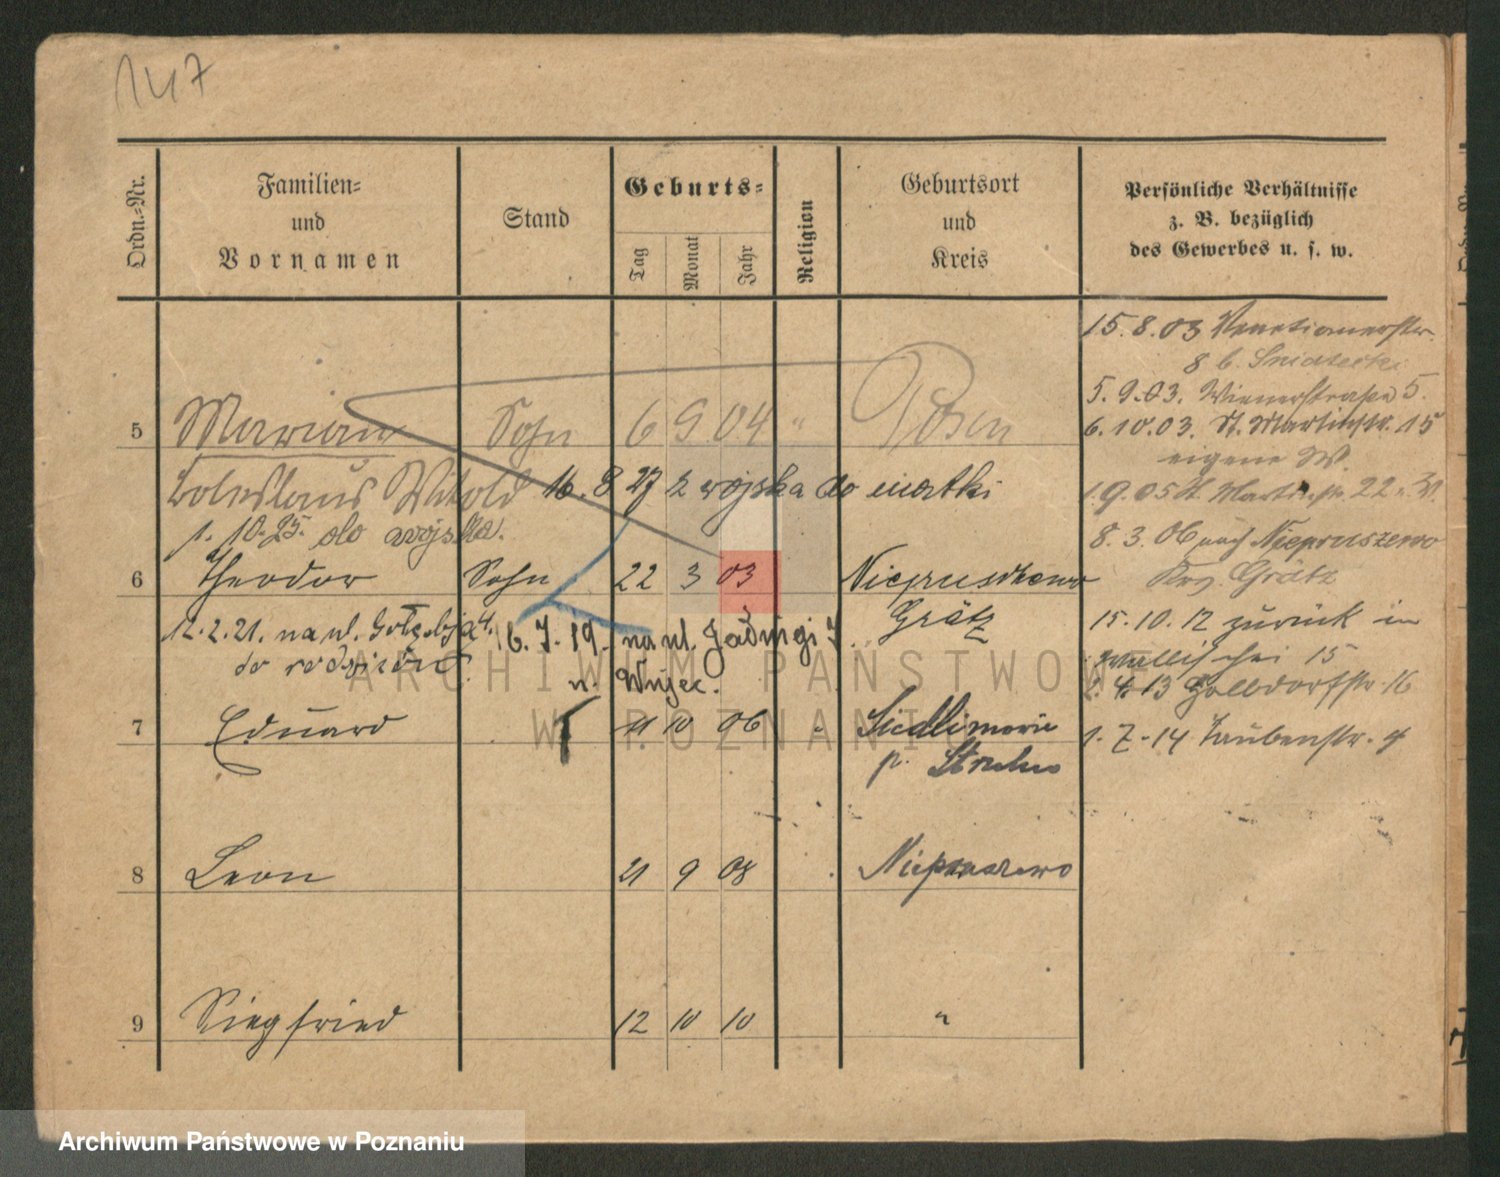 147
Ordn.-Nr.
Familien-
und
Vornamen
Stand
Geburts-
Tag
Monat
Jahr
Religion
Geburtsort
und
Kreis
Persönliche Verhältnisse
z. B. bezüglich
des Gewerbes u. s. w.
15. 8. 03 Venetianerstr.
8 b.
5. 9. 03. Wienerstraße 5.
5 Marian Sohn 6 9 04 " Posen
6. 10. 03. St. Martinstr. 15
eigene W.
Boleslaus Witold 16. 8 27 z wojska do matki
1. 9. 05 St. Martinstr. 22
1. 10. 25. do wojska.
8. 3. 06 nach Niepruszewo
6 Theodor Sohn 22 3 03 Niepruschewo
Krs. Grätz
Grätz
12. 2. 21. na ul. Gołębią 4.
do rodziców
16. 7. 19. na ul. Jadwigi 7
u. Wujec.
15. 10. 12 zurück in
Wallischei 15
4. 13 Golldorfstr. 16
7 Eduard 21 10 06 Siedlimowie
p. Strelno
1. 7. 14 Taubenstr. 4
8 Leon 21 9 08 Niepruszewo
9 Siegfried 12 10 10 "
ARCHIWUM PAŃSTWOWE
W POZNANIU
Archiwum Państwowe w Poznaniu